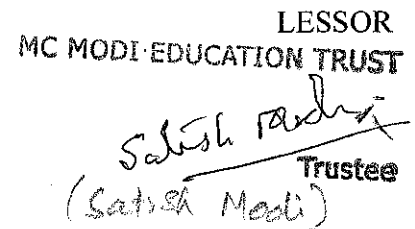 LESSOR
MC MODI EDUCATION TRUST
Satish Modi
Trustee
(Satish Modi)